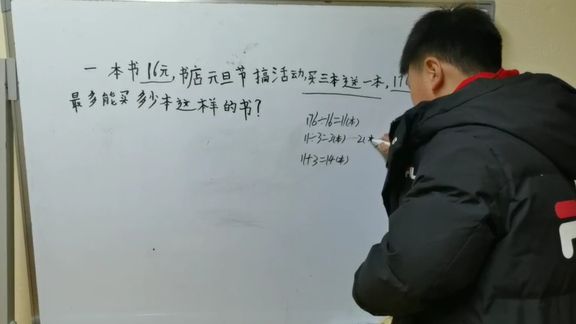 一本书16元,书店元旦节搞活动,买三本送一本,17
最多能买多少本这样的书?
176÷16=11(本)
11÷3=3(本)……2(本
11+3=14(本)